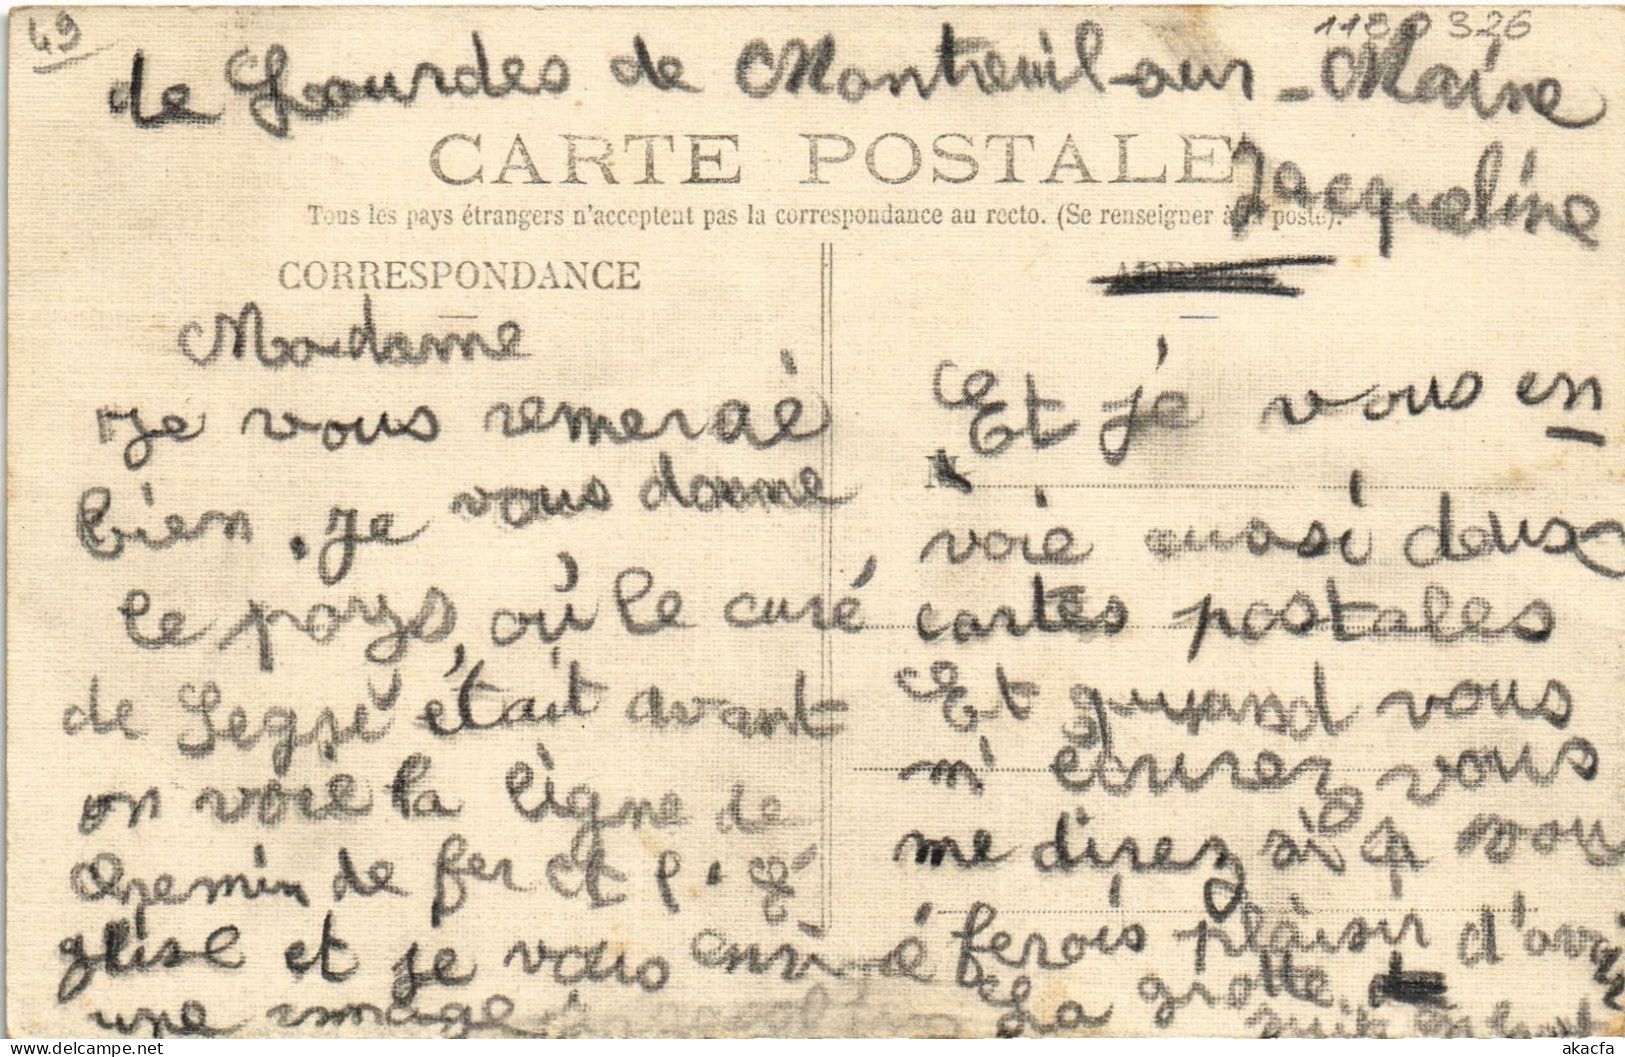 49
1180 326
de Lourdes de Montreuil-sur-Maine
CARTE POSTALE
Jacqueline
Tous les pays étrangers n'acceptent pas la correspondance au recto. (Se renseigner à la poste).
CORRESPONDANCE
Madame
Je vous remeraè
bien. Je vous donne
le pays, où le curé
de Segré était avant
on voie la ligne de
chemin de fer et l'é
glise et je vous envi é
une image
ADRESSE
Et je vous en
voie quasi deux
cartes postales
Et quand vous
m'écrirez vous
me direz si ça vou
ferois plaisir d'avoir
la grotte
akacfa